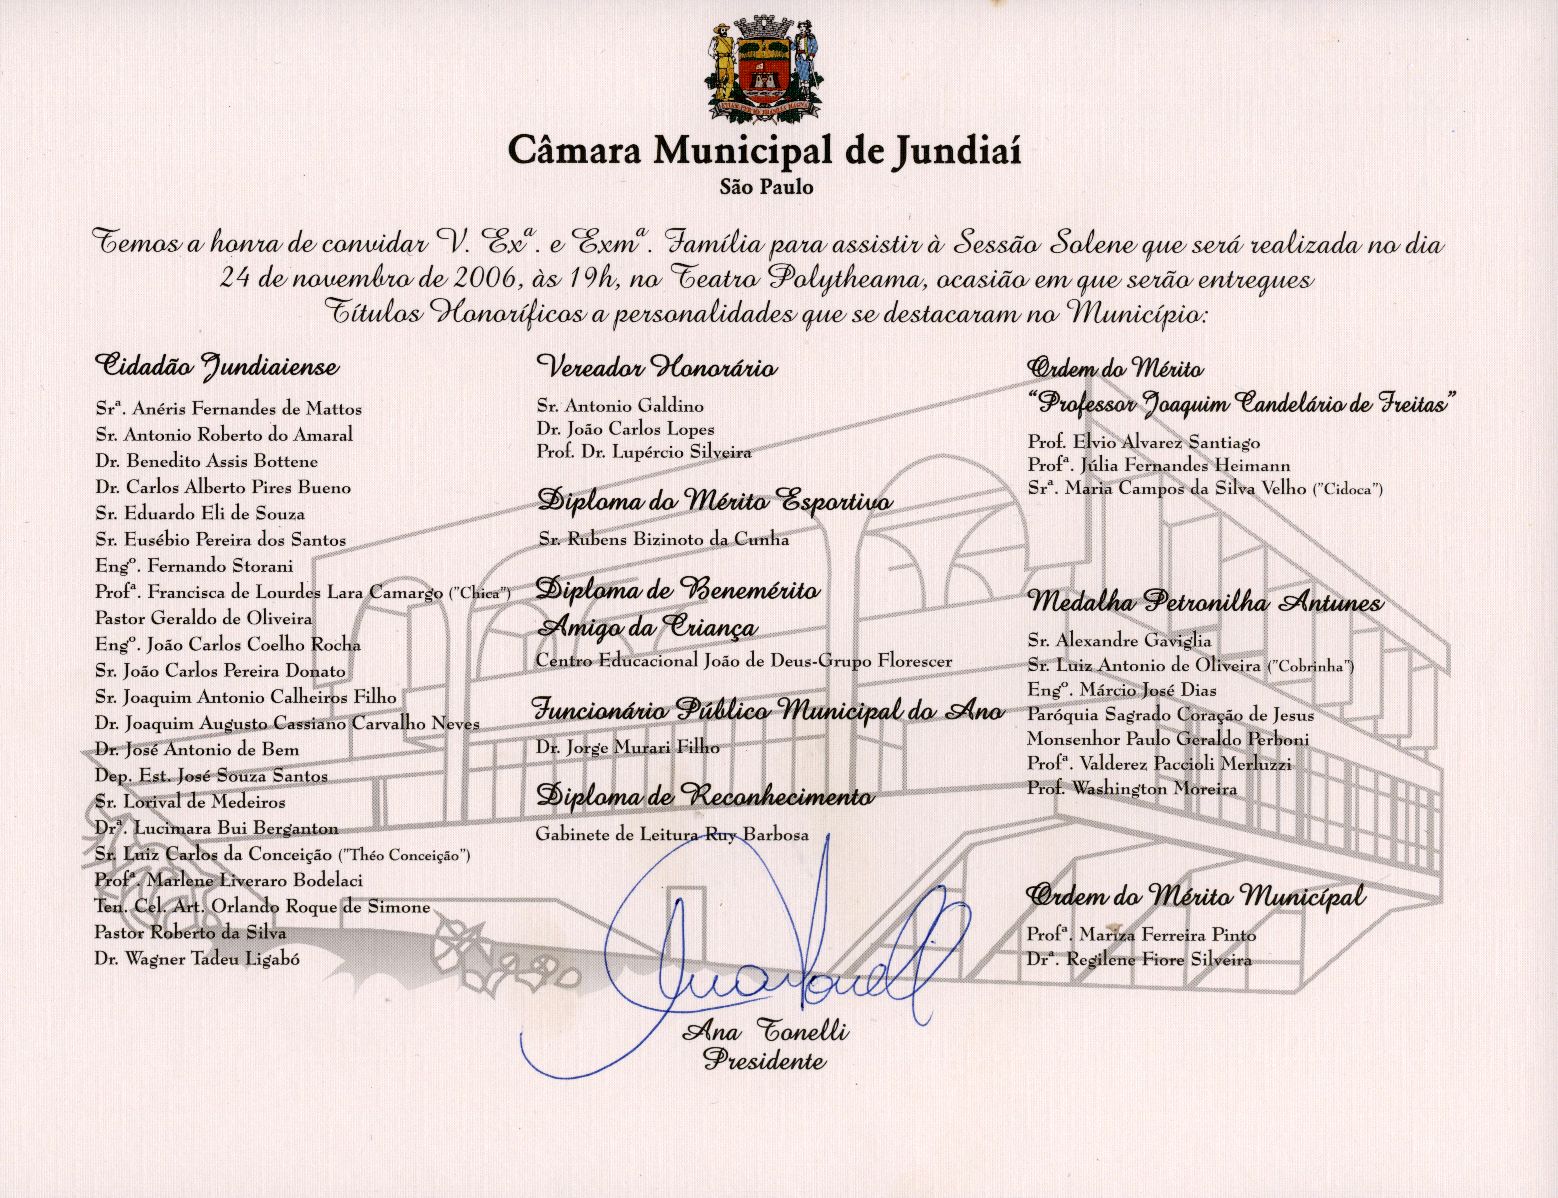 Câmara Municipal de Jundiaí
São Paulo
Temos a honra de convidar V. Exª. e Exmª. Família para assistir à Sessão Solene que será realizada no dia
24 de novembro de 2006, às 19h, no Teatro Polytheama, ocasião em que serão entregues
Títulos Honoríficos a personalidades que se destacaram no Município:
Cidadão Jundiaiense
Srª. Anéris Fernandes de Mattos
Sr. Antonio Roberto do Amaral
Dr. Benedito Assis Bottene
Dr. Carlos Alberto Pires Bueno
Sr. Eduardo Eli de Souza
Sr. Eusébio Pereira dos Santos
Engº. Fernando Storani
Profª. Francisca de Lourdes Lara Camargo ("Chica")
Pastor Geraldo de Oliveira
Engº. João Carlos Coelho Rocha
Sr. João Carlos Pereira Donato
Sr. Joaquim Antonio Calheiros Filho
Dr. Joaquim Augusto Cassiano Carvalho Neves
Dr. José Antonio de Bem
Dep. Est. José Souza Santos
Sr. Lorival de Medeiros
Drª. Lucimara Bui Berganton
Sr. Luiz Carlos da Conceição ("Théo Conceição")
Profª. Marlene Liveraro Bodelaci
Ten. Cel. Art. Orlando Roque de Simone
Pastor Roberto da Silva
Dr. Wagner Tadeu Ligabó
Vereador Honorário
Sr. Antonio Galdino
Dr. João Carlos Lopes
Prof. Dr. Lupércio Silveira
Diploma do Mérito Esportivo
Sr. Rubens Bizinoto da Cunha
Diploma de Benemérito
Amigo da Criança
Centro Educacional João de Deus-Grupo Florescer
Funcionário Público Municipal do Ano
Dr. Jorge Murari Filho
Diploma de Reconhecimento
Gabinete de Leitura Ruy Barbosa
Ordem do Mérito
"Professor Joaquim Candelário de Freitas"
Prof. Elvio Alvarez Santiago
Profª. Júlia Fernandes Heimann
Srª. Maria Campos da Silva Velho ("Cidoca")
Medalha Petronilha Antunes
Sr. Alexandre Gaviglia
Sr. Luiz Antonio de Oliveira ("Cobrinha")
Engº. Márcio José Dias
Paróquia Sagrado Coração de Jesus
Monsenhor Paulo Geraldo Perboni
Profª. Valderez Paccioli Merluzzi
Prof. Washington Moreira
Ordem do Mérito Municípal
Profª. Mariza Ferreira Pinto
Drª. Regilene Fiore Silveira
Ana Tonelli
Ana Tonelli
Presidente